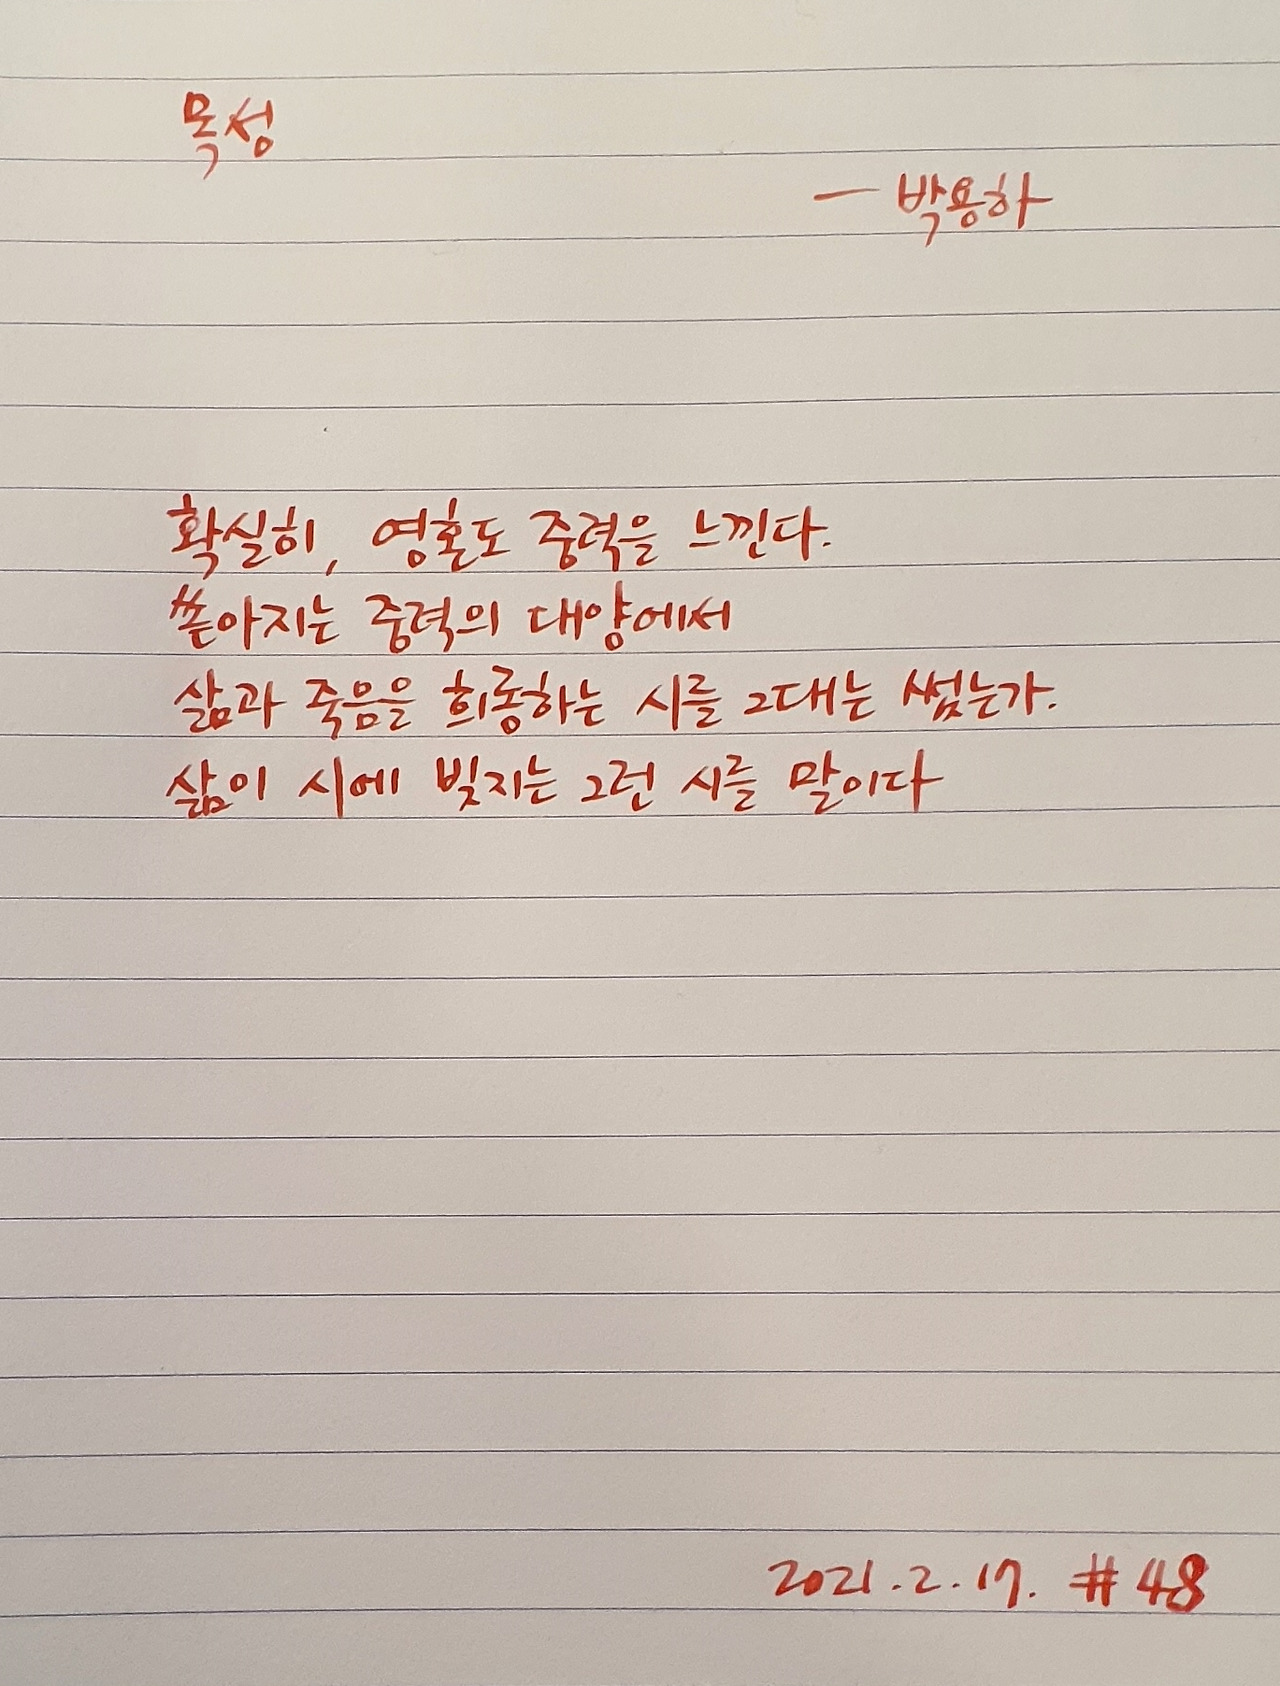 목성
— 박용하
확실히, 영혼도 중력을 느낀다.
쏟아지는 중력의 대양에서
삶과 죽음을 희롱하는 시를 그대는 썼는가.
삶이 시에 빚지는 그런 시를 말이다
2021.2.17. #48